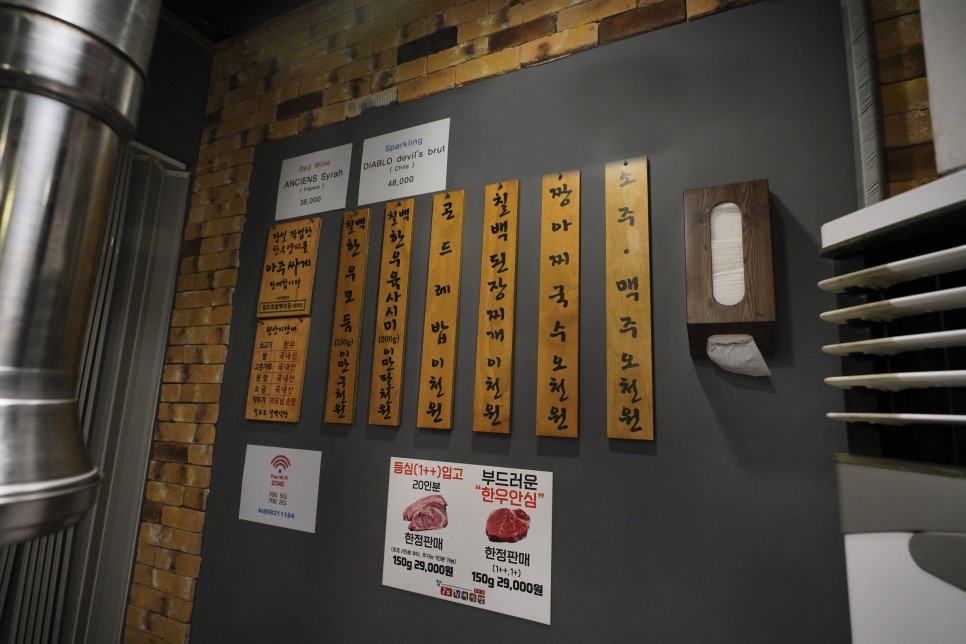 Red Wine
ANCIENS Syrah
( France )
38,000
Sparkling
DIABLO devil's brut
( Chile )
48,000
장성 착범한
한우암소를
아주싸게
판매합니다
원산지안내
소고기 한우
쌀 국내산
고춧가루 국내산
된장 국내산
소금 국내산
깍두기 이모님 손맛
칠백
한우모듬
(150g)
이만구천원
칠백
한우육사시미
(200g)
이만팔천원
곤드레밥 이천원
칠백된장찌개 이천원
짱아찌국수 오천원
소주·맥주 오천원
Free Wi-Fi
ZONE
700 5G
700 2G
kdj08211184
등심(1++)입고
20인분
한정판매
150g 29,000원
부드러운
"한우안심"
한정판매
(1++,1+)
150g 29,000원